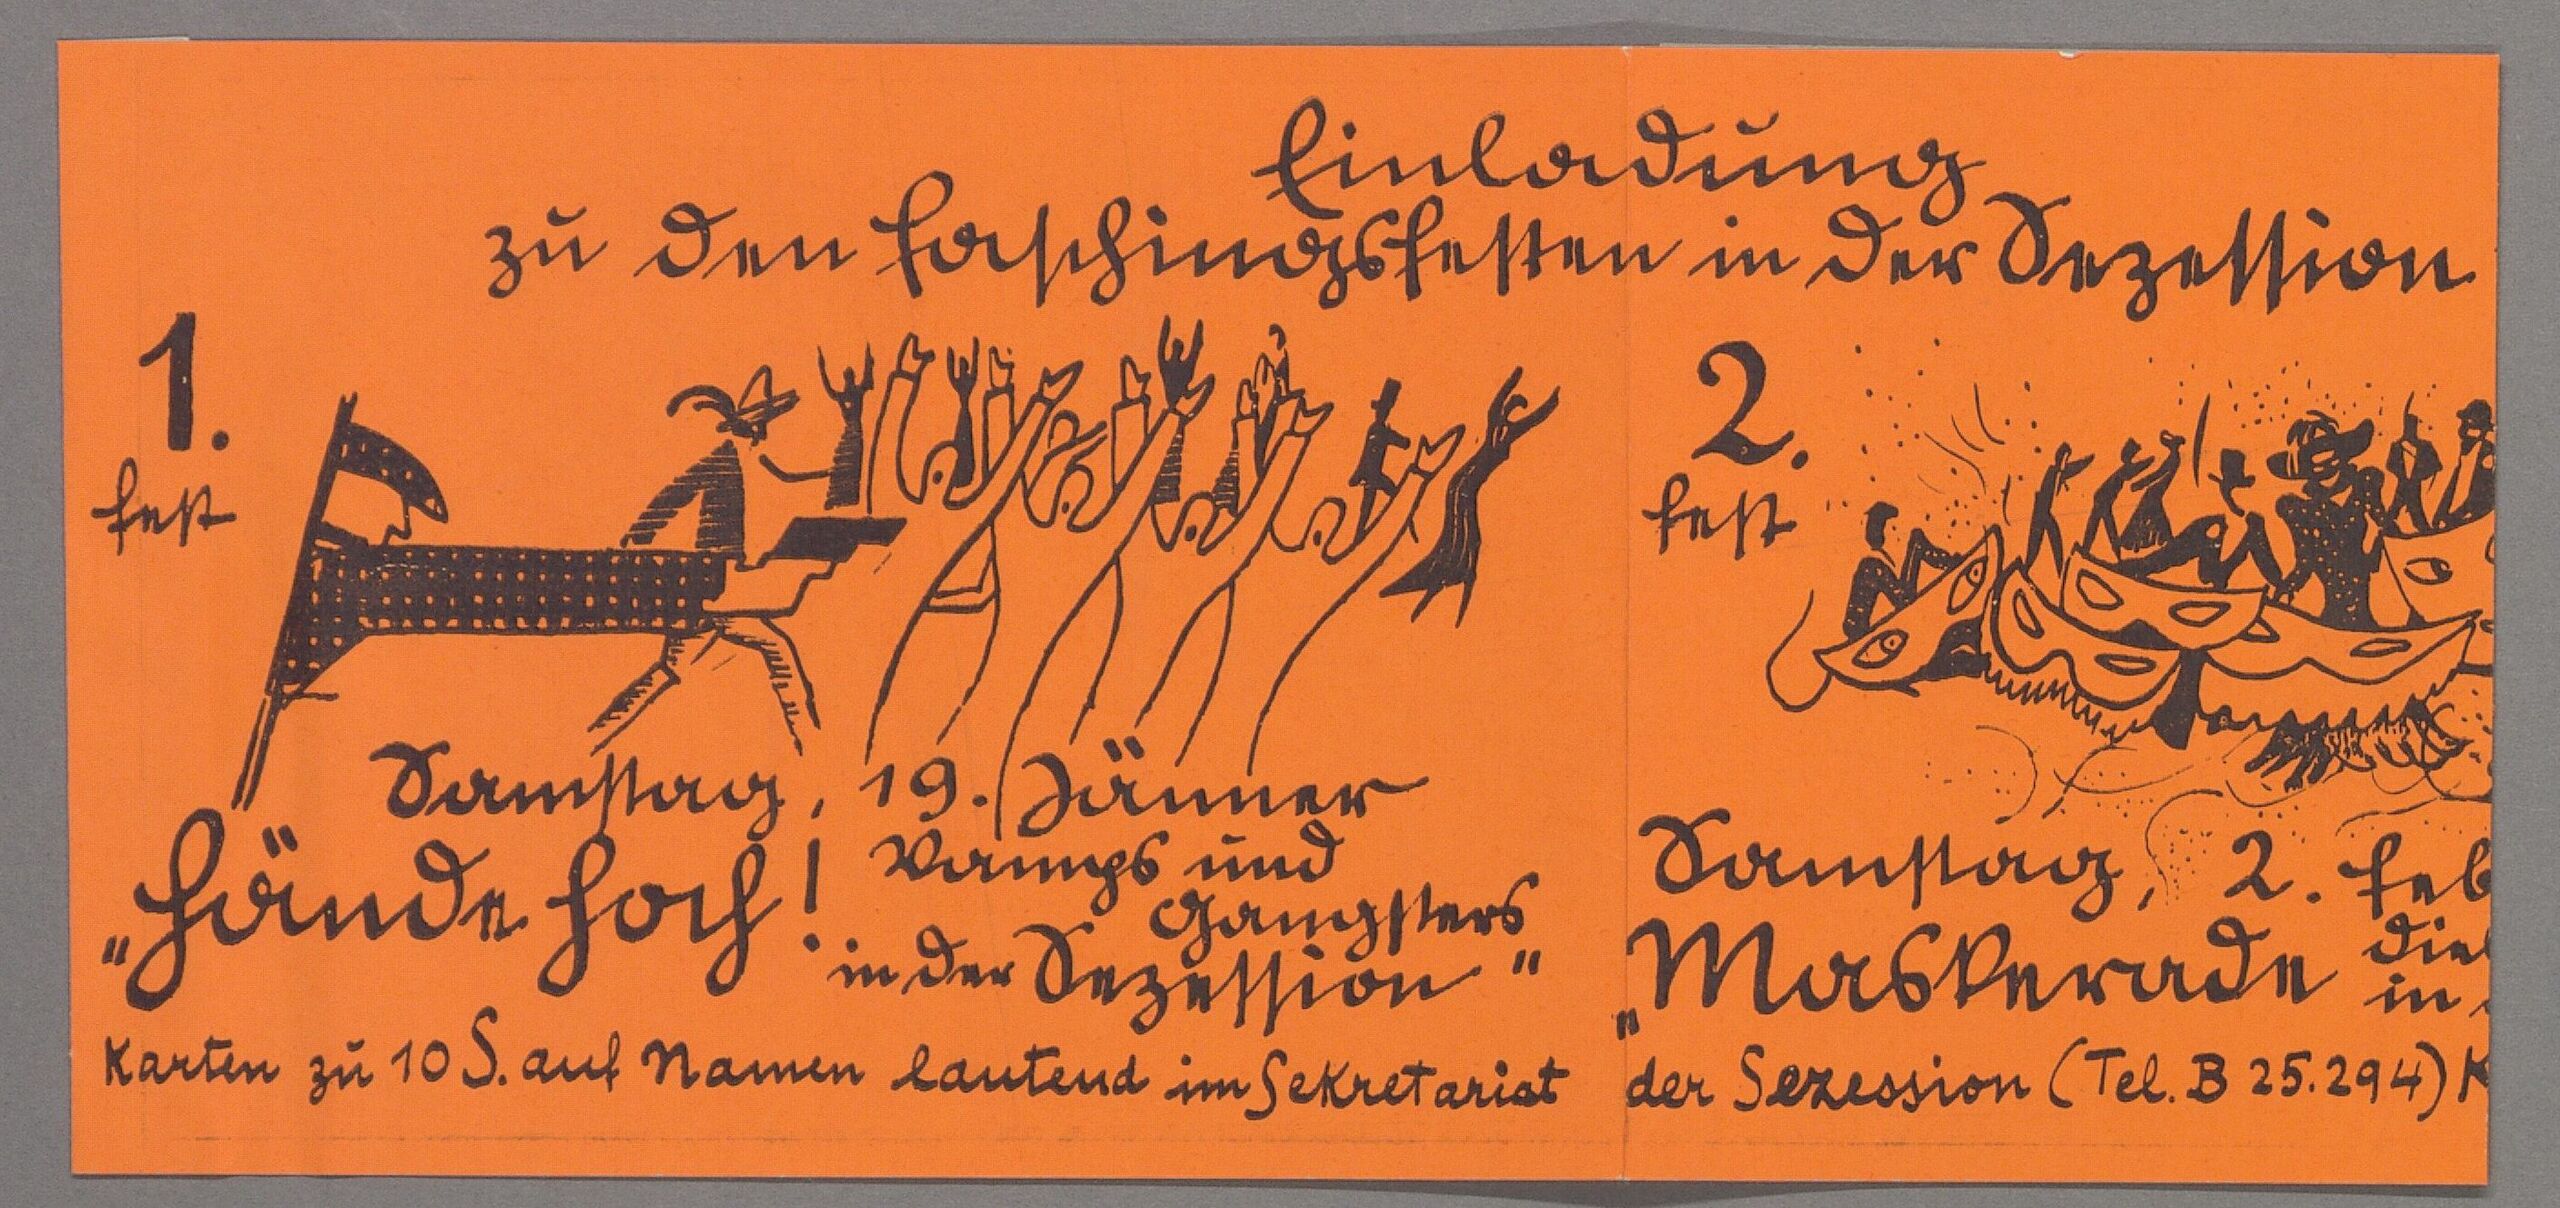 Einladung
zu den Faschingsfesten in der Sezession
1.
Fest
Samstag, 19. Jänner
„Hände hoch! Vamps und
Gangsters
in der Sezession"
2.
Fest
Samstag, 2. Feb
„Maskerade
in
Karten zu 10 S. auf Namen lautend im Sekretariat der Sezession (Tel. B 25.294) K